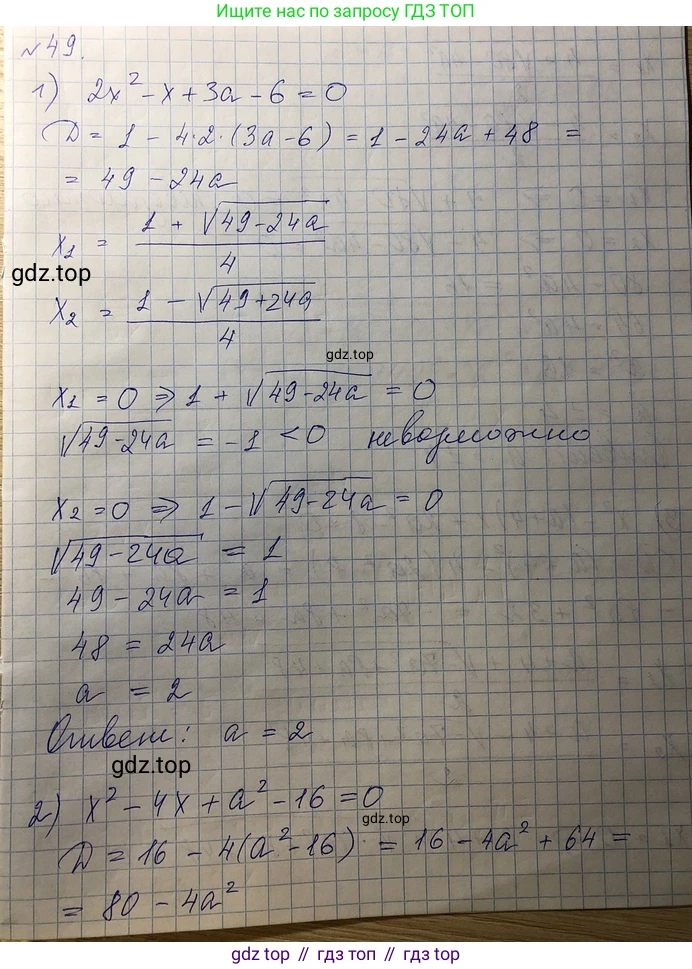 Ищите нас по запросу ГДЗ ТОП
№49.
1) 2x² - x + 3a - 6 = 0
D = 1 - 4·2·(3a - 6) = 1 - 24a + 48 =
= 49 - 24a
x₁ = (1 + √(49 - 24a))/4
gdz.top
x₂ = (1 - √(49 + 24a))/4
gdz.top
x₁ = 0 ⇒ 1 + √(49 - 24a) = 0
√(49 - 24a) = -1 < 0 невозможно
x₂ = 0 ⇒ 1 - √(49 - 24a) = 0
√(49 - 24a) = 1
49 - 24a = 1
48 = 24a
a = 2
Ответ: a = 2
gdz.top
2) x² - 4x + a² - 16 = 0
gdz.top
D = 16 - 4(a² - 16) = 16 - 4a² + 64 =
= 80 - 4a²
gdz top // гдз топ // гдз.топ